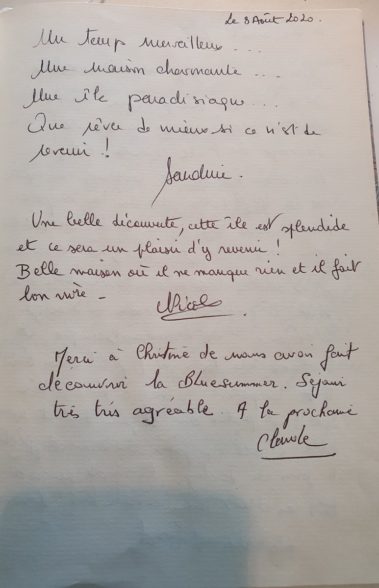 Le 8 Août 2020.
Un temps merveilleux...
Une maison charmante...
Une île paradisiaque...
Que rêver de mieux si ce n'est de
revenir !
Sandrine.
Une belle découverte, cette île est splendide
et ce sera un plaisir d'y revenir !
Belle maison où il ne manque rien et il fait
bon vivre -
Nicole
Merci à Christine de nous avoir fait
découvrir la Bluesummer. Séjour
très très agréable. A la prochaine
Claude